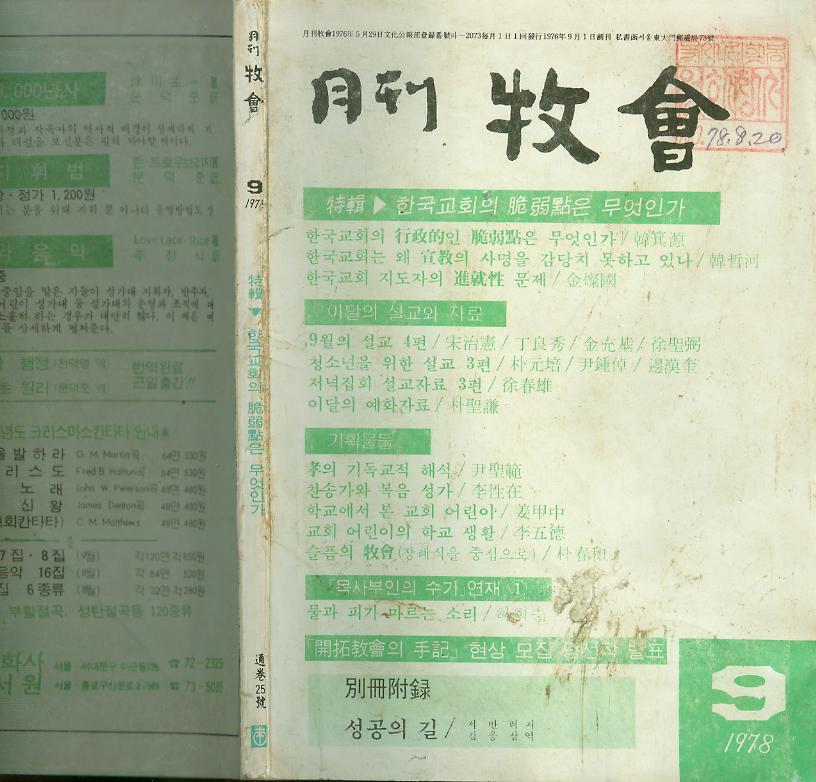 月刊牧會1976年5月29日文化公報部登録番號라-2073每月1日1回發行1976年9月1日創刊 私書函서울東大門郵遞局73號
月刊 牧會
78.8.20
特輯▶한국교회의 脆弱點은 무엇인가
한국교회의 行政的인 脆弱點은 무엇인가/韓箕源
한국교회는 왜 宣教의 사명을 감당치 못하고 있나/韓哲河
한국교회 지도자의 進就性 문제/金燦國
이달의 설교와 자료
9월의 설교 4편/宋治憲/丁良秀/金充基/徐聖弼
청소년을 위한 설교 3편/朴元培/尹鍾倬/邊漢奎
저녁집회 설교자료 3편/徐春雄
이달의 예화자료/朴聖謙
기획물들
孝의 기독교적 해석/尹聖範
찬송가와 복음 성가/李性在
학교에서 본 교회 어린이/姜甲中
교회 어린이의 학교 생활/李五德
슬픔의 牧會(장례식을 중심으로)/朴春和
「목사부인의 수기」연재 ①
물과 피가 마르는 소리/
「開拓教會의 手記」 현상 모집 당선작 발표
別冊附録
성공의 길/
김응삼역
9
1978
月刊 牧會
9
1978
特輯▼한국교회의 脆弱點은 무엇인가
通巻25號
000원
정가 1,200원
Love Lace·Rice著
음악
중
행정 (전덕명 역)
번역완료
초 원리 (문덕준 역)
근일출간!!
G. M. Martin곡 64면 530원
리스도 Fred B Holton곡 64면 530원
노래 John W. Peterson곡 48면 480원
신왕 James Denton곡 48면 480원
C. M. Matthews 48면 480원
7집·8집 (9월) 각120면 각850원
음악 16집 (8월) 각 64면 520원
집 6종류 (8월) 각 32면 각280원
부활절곡, 성탄절곡등 120종류
☎ 72-2325
서원 서울·종로구 ☎ 73-5035